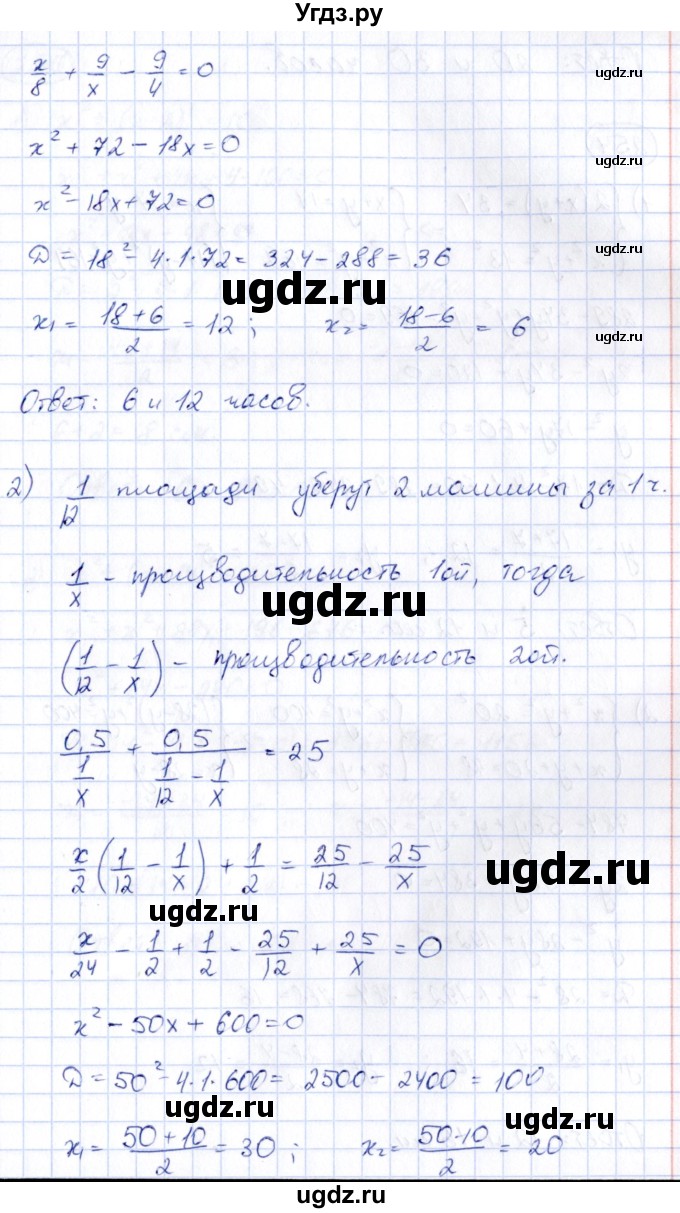 Угдз.ру
x/8 + 9/x − 9/4 = 0
ugdz.ru
ugdz.ru
x² + 72 − 18x = 0
ugdz.ru
x² − 18x + 72 = 0
ugdz.ru
D = 18² − 4·1·72 = 324 − 288 = 36
ugdz.ru
ugdz.ru
x₁ = (18+6)/2 = 12; x₂ = (18−6)/2 = 6
ugdz.ru
Ответ: 6 и 12 часов.
ugdz.ru
2) 1/12 площади уберут 2 машины за 1ч.
1/x − производительность 1ой, тогда
ugdz.ru
ugdz.ru
(1/12 − 1/x) − производительность 2ой.
0,5/(1/x) + 0,5/(1/12 − 1/x) = 25
ugdz.ru
x/2 (1/12 − 1/x) + 1/2 = 25/12 − 25/x
ugdz.ru
ugdz.ru
x/24 − 1/2 + 1/2 − 25/12 + 25/x = 0
ugdz.ru
x² − 50x + 600 = 0
D = 50² − 4·1·600 = 2500 − 2400 = 100
ugdz.ru
ugdz.ru
x₁ = (50+10)/2 = 30; x₂ = (50−10)/2 = 20
ugdz.ru